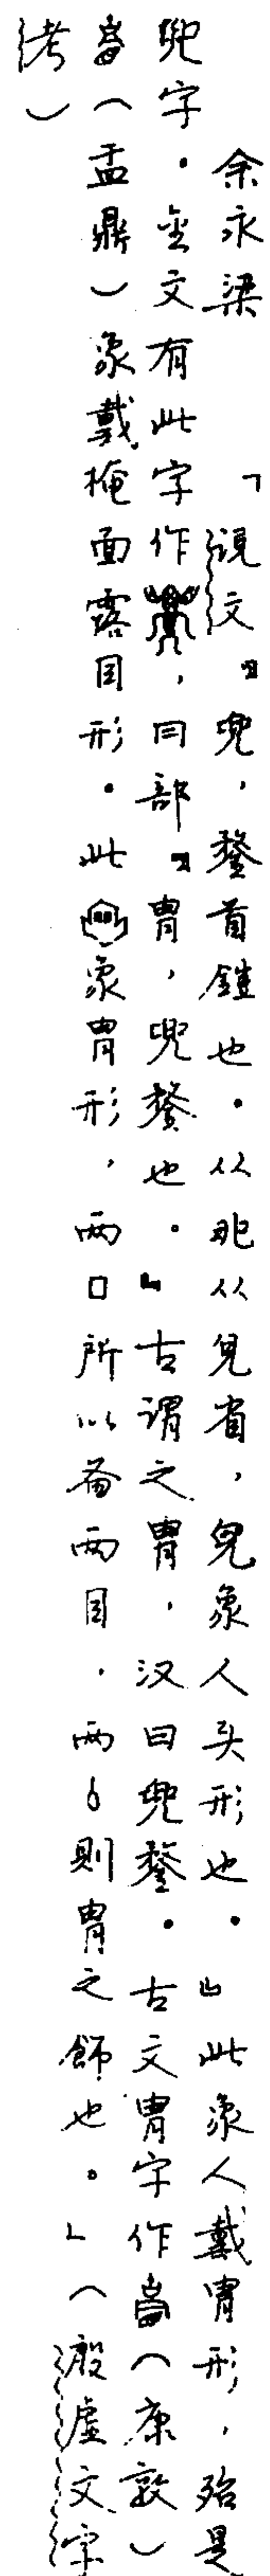 余永梁 「说文『兜,鍪首鎧也.从𠑹从皃省,皃象人头形也.』此象人戴冑形,殆是
兜字.金文有此字作,冃部『冑,兜鍪也。』古谓之冑,汉曰兜鍪.古文冑字作(康敦)
(盂鼎)象戴掩面露目形.此象冑形,两口所以备两目.两则冑之飾也。」(殷虚文字
考)